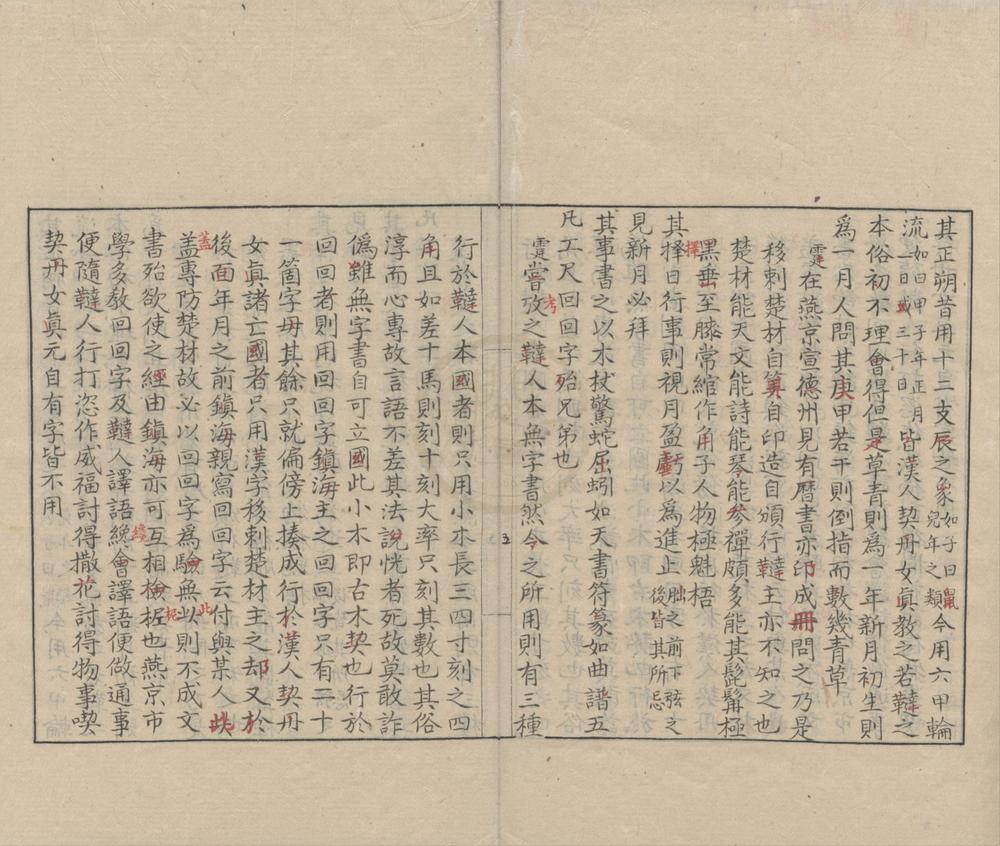 其正朔昔用十二支辰之象如子曰鼠兒年之類今用六甲輪
流如曰甲子年正月一日或三十日皆漢人契丹女眞教之若韃之
本俗初不理會得但是草青則爲一年新月初生則
爲一月人問其庚甲若干則倒指而數幾青草
霆在燕京宣德州見有曆書亦印成冊問之乃是
移剌楚材自算自印造自頒行韃主亦不知之也
楚材能天文能詩能琴能參禪頗多能其髭髯極
黑垂至膝常綰作角子人物極魁梧
其擇日行事則視月盈虧以爲進止朏之前下弦之後皆其所忌
見新月必拜
其事書之以木杖驚蛇屈蚓如天書符篆如曲譜五
凡工尺回回字殆兄弟也
霆嘗攷之韃人本無字書然今之所用則有三種
行於韃人本國者則只用小木長三四寸刻之四
角且如差十馬則刻十刻大率只刻其數也其俗
淳而心專故言語不差其法說恍者死故莫敢詐
僞雖無字書自可立國此小木即古木契也行於
回回者則用回回字鎭海主之回回字只有二十
一箇字母其餘只就偏傍上揍成行於漢人契丹
女眞諸亡國者只用漢字移剌楚材主之却又於
後面年月之前鎭海親寫回回字云付與某人此
盖專防楚材故必以回回字爲驗無以則不成文
書殆欲使之經由鎭海亦可互相檢柅也燕京市
學多教回回字及韃人譯語纔會譯語便做通事
便隨韃人行打恣作威福討得撒花討得物事喫
契丹女眞元自有字皆不用